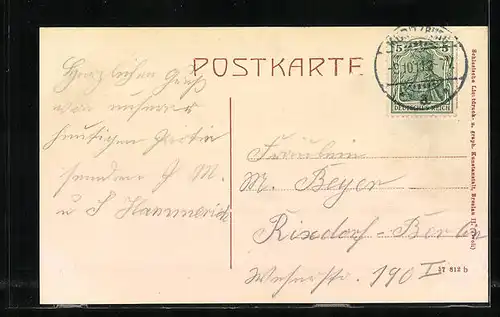 POSTKARTE
Herzlichen Gruß
von unserer
heutigen Partie
senden J M.
u J Hammerich
5 5
DEUTSCHES REICH
Fräulein
M. Beyer
Rixdorf - Berlin
190 I
17 812 b
Schlesische Lichtdruck- u. graph. Kunstanstalt, Breslau II